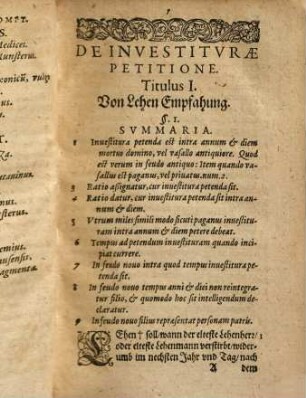 OMPT.
S.
Medices.
Munsterus.
conicũ, rulgo
T.
Za.
etaninus.
sterus.
nsensis.
agmenta
1
DE INVESTITVRÆ
PETITIONE.
Titulus I.
Von Lehen Empfahung.
§. 1.
SVMMARIA.
1 Inuestitura petenda est intra annum & diem
mortuo domino, vel vasallo antiquiore. Quod
est verum in feudo antiquo: Item quando va-
sallus est paganus, vel priuatus. num. 2.
3 Ratio asignatur, cur inuestitura petenda sit.
4 Ratio datur, cur inuestitura petenda sit intra an-
num & diem.
5 Vtrum miles simili modo sicuti paganus inuestitu-
ram intra annum & diem petere debeat.
6 Tempus ad petendum inuestituram quando inci-
piat currere.
7 In feudo nouo intra quod tempus inuestitura pe-
tenda sit.
8 In feudo nouo tempus anni & diei non reintegra-
tur filio, & quomodo hoc sit intelligendum de-
claratur.
9 In feudo nouo filius repræsentat personam patris.
LEhen † soll wann der elteste Lehenherr/
oder elteste Lehenmann verstirbt/ wider-
umb im nechsten Jahr vnd Tag/ nach
A dem